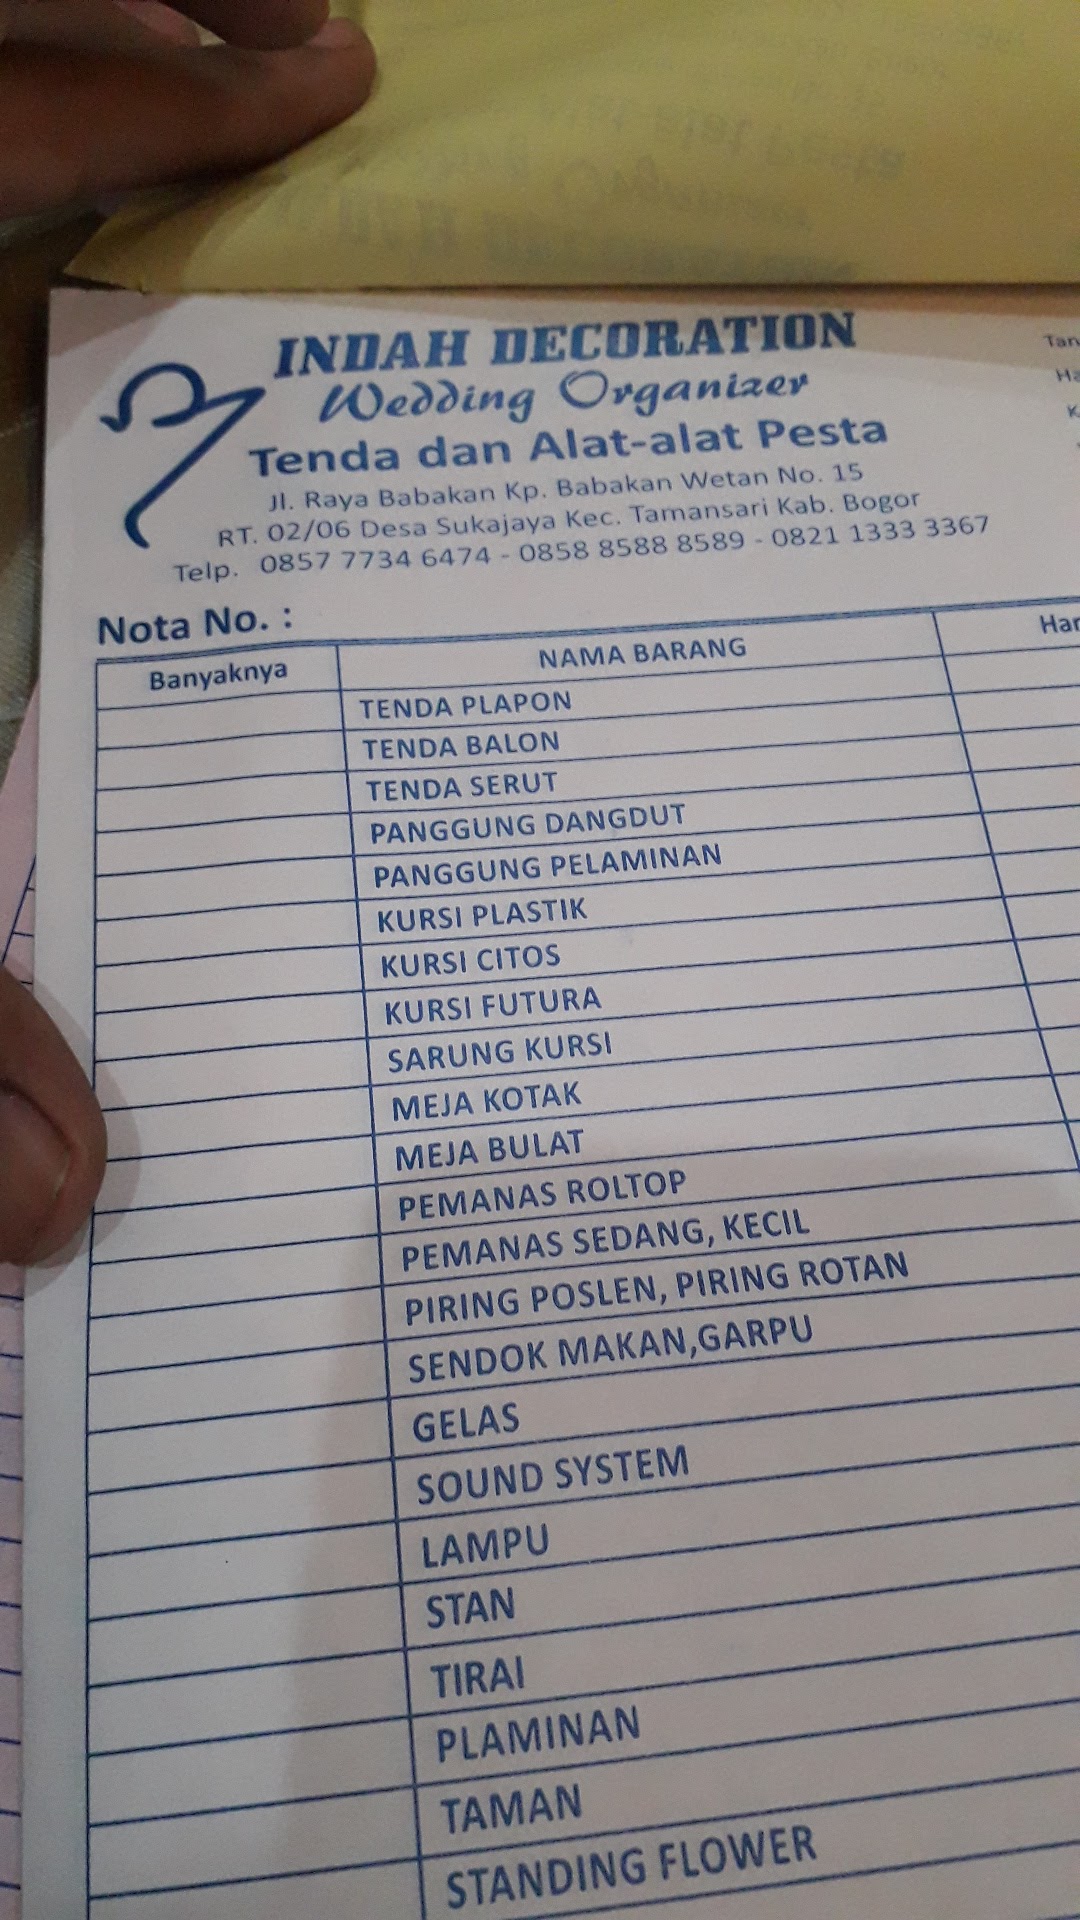 INDAH DECORATION
Wedding Organizer
Tenda dan Alat-alat Pesta
Jl. Raya Babakan Kp. Babakan Wetan No. 15
RT. 02/06 Desa Sukajaya Kec. Tamansari Kab. Bogor
Telp. 0857 7734 6474 - 0858 8588 8589 - 0821 1333 3367
Nota No. :
Banyaknya NAMA BARANG
TENDA PLAPON
TENDA BALON
TENDA SERUT
PANGGUNG DANGDUT
PANGGUNG PELAMINAN
KURSI PLASTIK
KURSI CITOS
KURSI FUTURA
SARUNG KURSI
MEJA KOTAK
MEJA BULAT
PEMANAS ROLTOP
PEMANAS SEDANG, KECIL
PIRING POSLEN, PIRING ROTAN
SENDOK MAKAN,GARPU
GELAS
SOUND SYSTEM
LAMPU
STAN
TIRAI
PLAMINAN
TAMAN
STANDING FLOWER